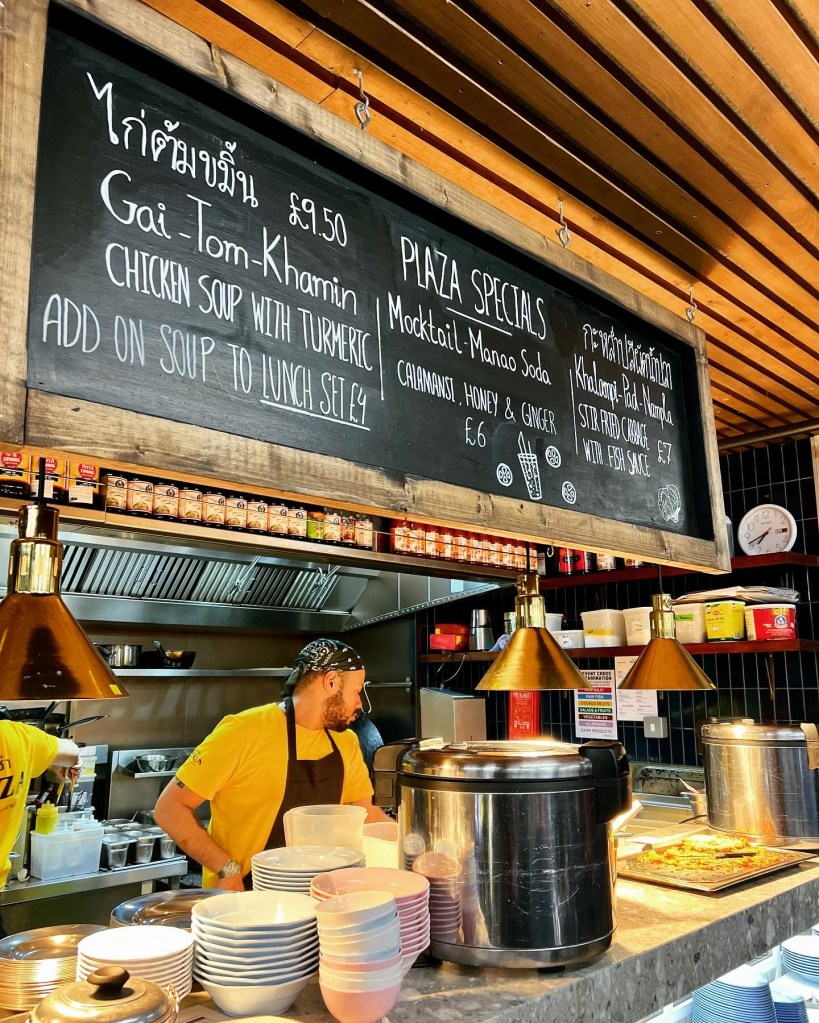 ไก่ต้มขมิ้น £9.50
Gai-Tom-Khamin
CHICKEN SOUP WITH TURMERIC
ADD ON SOUP TO LUNCH SET £4
PLAZA SPECIALS
Mocktail-Manao Soda
CALAMANSI, HONEY & GINGER
£6
กะหล่ำปลีผัดน้ำปลา
Khaloompi-Pad-Nampla
STIR FRIED CABBAGE £7
WITH FISH SAUCE
RAW FISH
COOKED MEATS
SALADS & FRUITS
VEGETABLES
DAIRY PRODUCTS